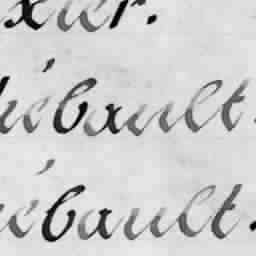 xier.
iébault.
iébault.